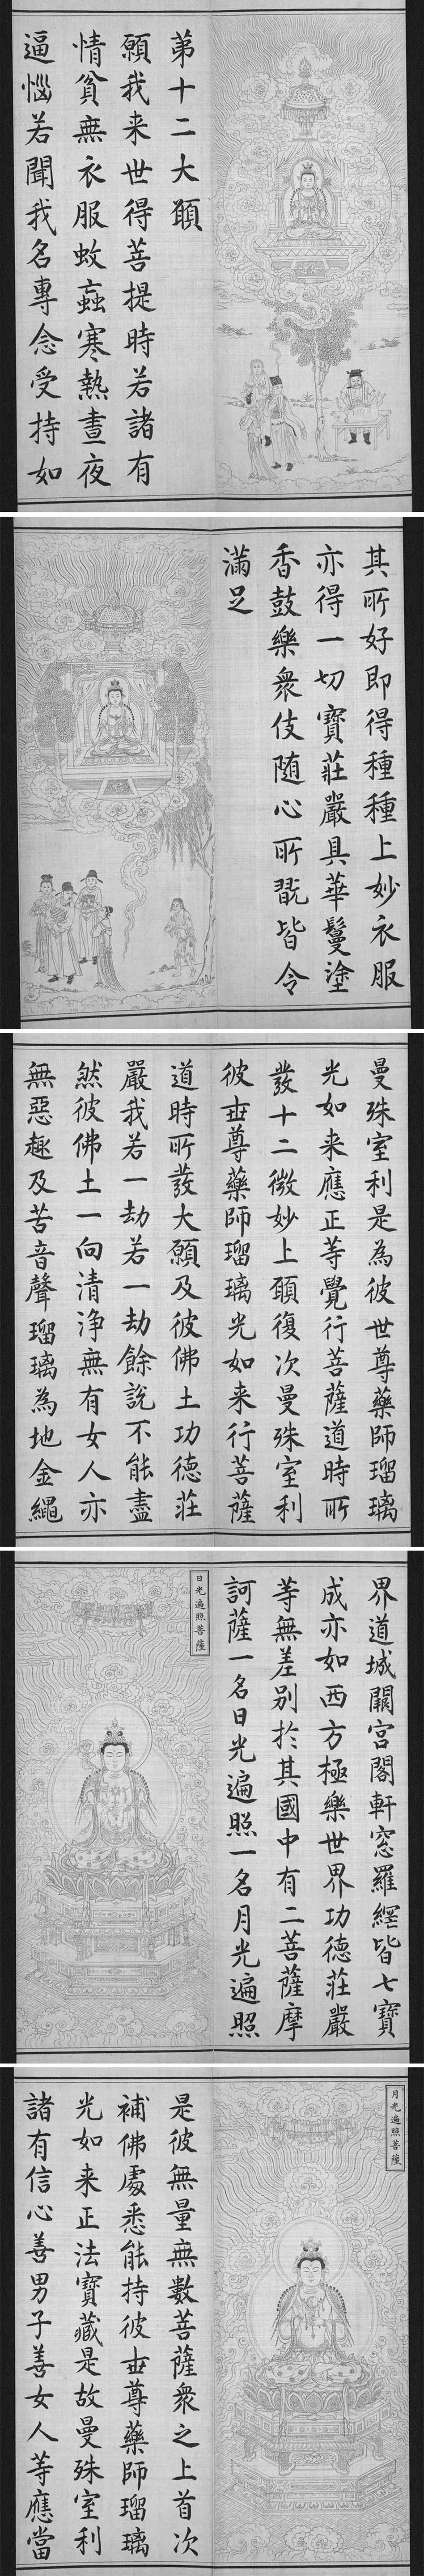 第十二大願
願我来世得菩提時若諸有
情貧無衣服蚊蝱寒熱晝夜
逼惱若聞我名專念受持如
其所好即得種種上妙衣服
亦得一切寶莊嚴具華鬘塗
香鼓樂衆伎随心所翫皆令
滿足
曼殊室利是為彼世尊藥師瑠璃
光如来應正等覺行菩薩道時所
發十二微妙上願復次曼殊室利
彼世尊藥師瑠璃光如来行菩薩
道時所發大願及彼佛土功德莊
嚴我若一劫若一劫餘說不能盡
然彼佛土一向清淨無有女人亦
無惡趣及苦音聲瑠璃為地金繩
界道城闕宮閣軒窓羅網皆七寶
成亦如西方極樂世界功德莊嚴
等無差别於其國中有二菩薩摩
訶薩一名日光遍照一名月光遍照
日光遍照菩薩
月光遍照菩薩
是彼無量無數菩薩衆之上首次
補佛處悉能持彼世尊藥師瑠璃
光如来正法寶藏是故曼殊室利
諸有信心善男子善女人等應當